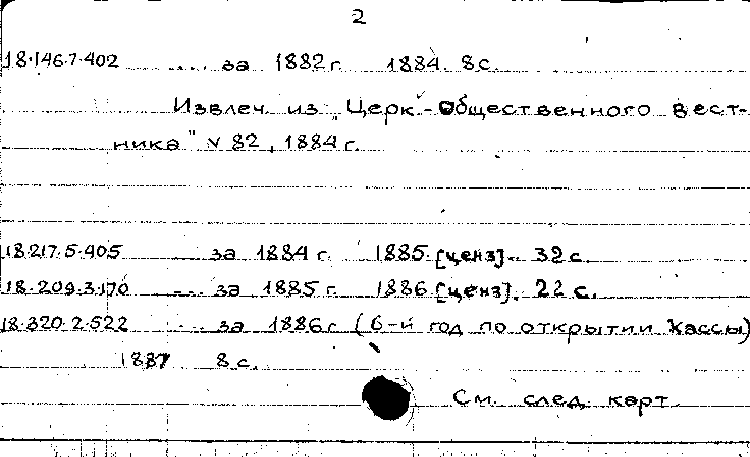 2
18.146.7.402 .... за 1882 г. 1884. 8 с.
Извлеч. из "Церк.-Общественного Вест-
ника" № 82, 1884 г.
18.217.5.405 ... за 1884 г. 1885. [ценз]. 32 с.
18.209.3.170 ... за 1885 г. 1886. [ценз]. 22 с.
18.320.2.522 ... за 1886 г. (6-й год по открытии кассы)
1887 8 с.
См. след. карт.